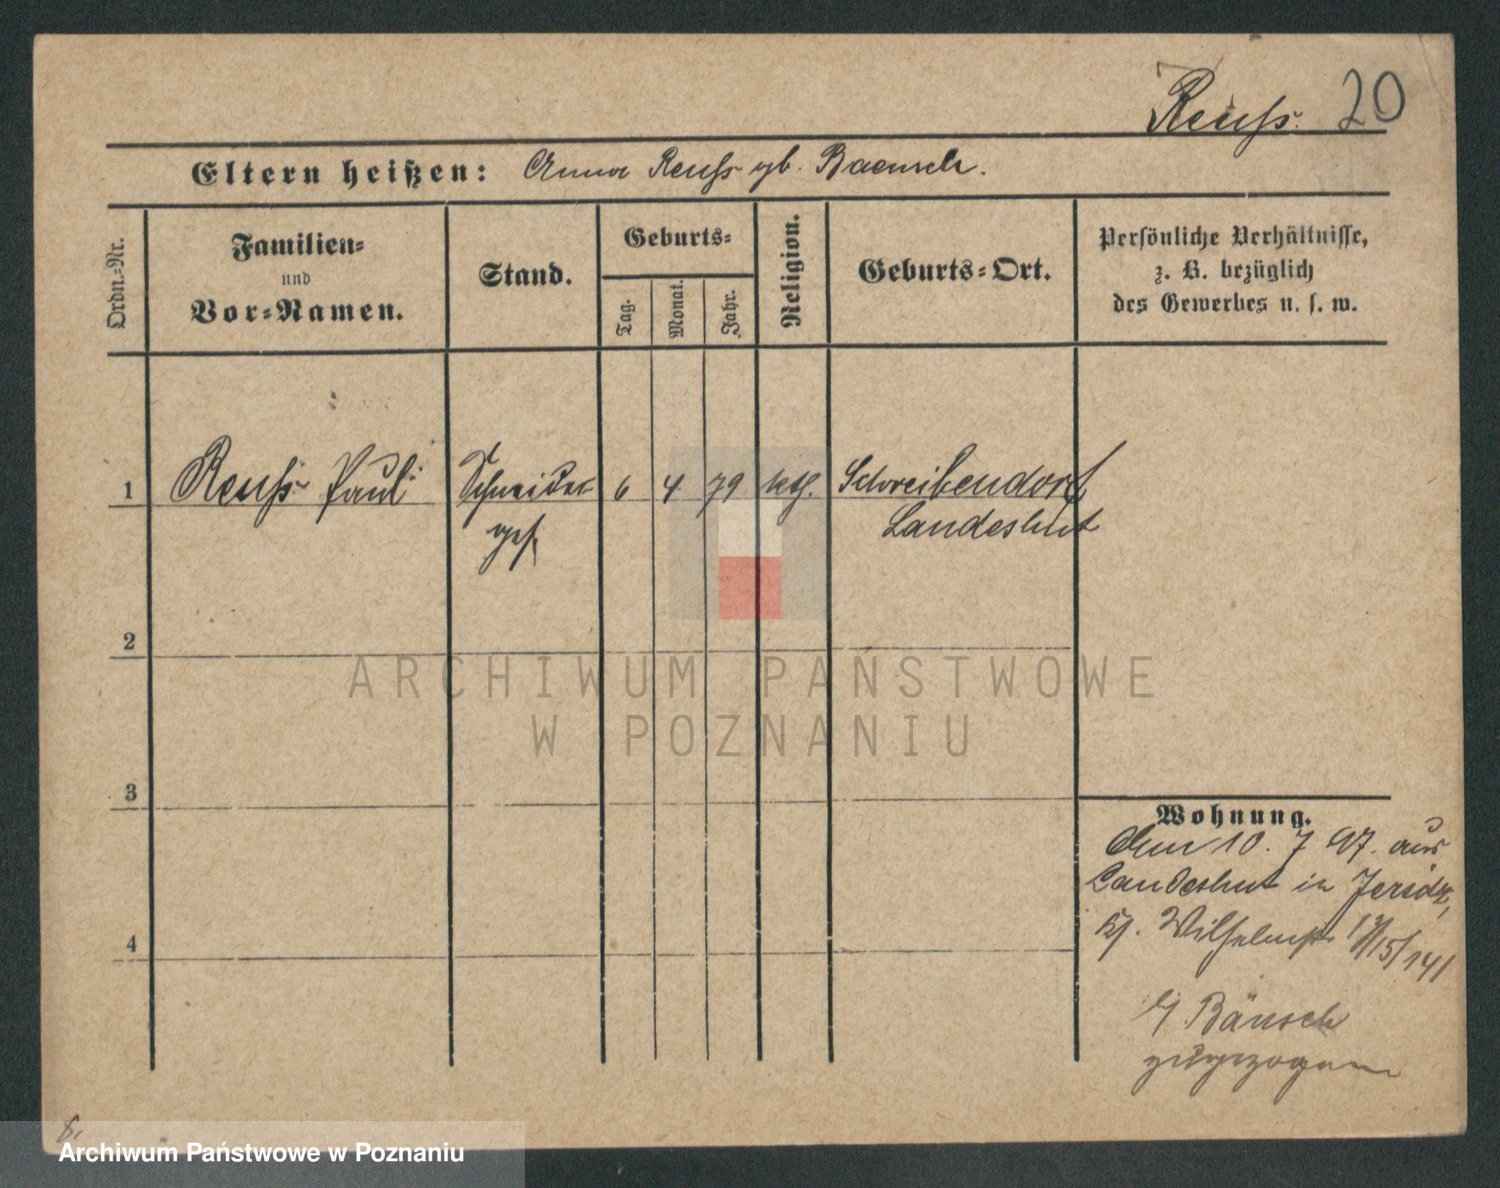 Reuß. 20
Eltern heißen: Anna Reuß gb. Baensch.
Ordn.-Nr.
Familien-
und
Vor-Namen.
Stand.
Geburts-
Tag.
Monat.
Jahr.
Religion.
Geburts-Ort.
Persönliche Verhältnisse,
z. B. bezüglich
des Gewerbes u. s. w.
1 Reuß Paul Schneider 6 4 79 kth. Schreibendorf
ges. Landeshut
2
3
4
Wohnung.
Den 10. 7 97. aus
Landeshut in Jersitz,
Wilhelmstr. 15/141
Bänsch
zugezogen
ARCHIWUM PAŃSTWOWE
W POZNANIU
Archiwum Państwowe w Poznaniu